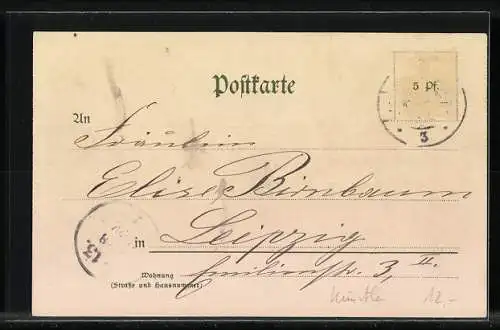 Postkarte
5 Pf.
3
An
Fräulein
Elise Birnbaum
in Leipzig
Wohnung
(Straße und Hausnummer)
Emilienstr. 3, II.
Künstler 12,-